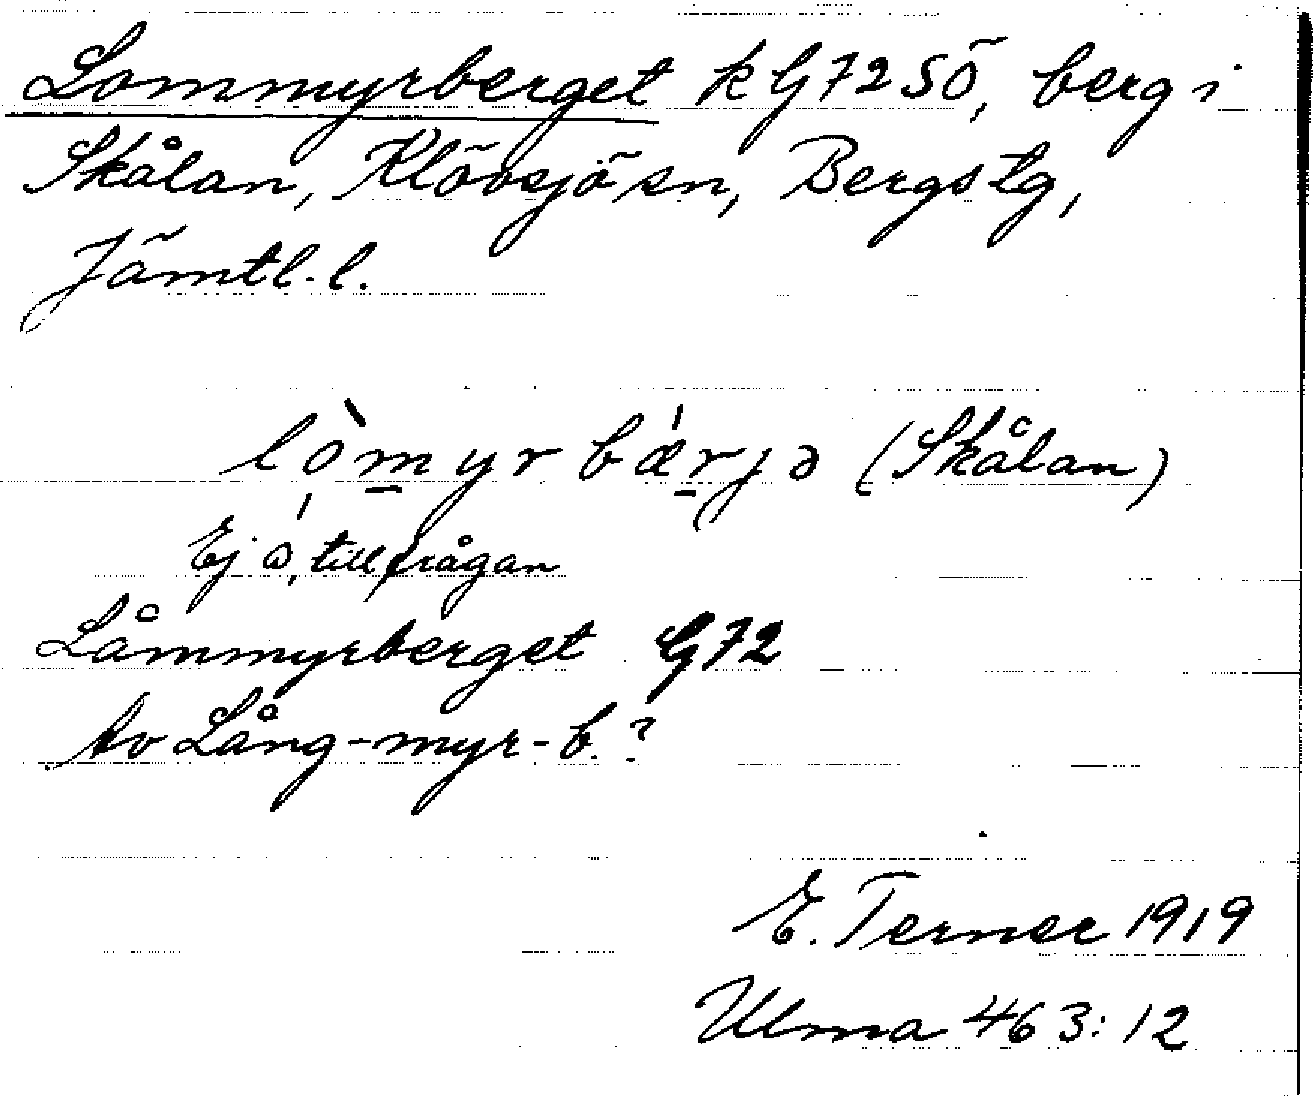 Lommyrberget k G72 SÖ, berg i
Skålan, Klövsjö sn, Bergs tg,
Jämtl. l.
lòm̲yrbǽr̲jə (Skålan)
Ej å, tillfrågan
Låmmyrberget G72
Av Lång-myr-b.?
E. Terner 1919
Ulma 463:12